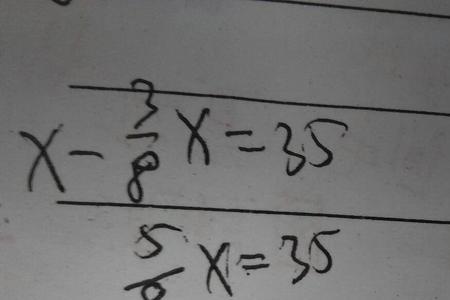 x - 3/8 x = 35
5/8 x = 35